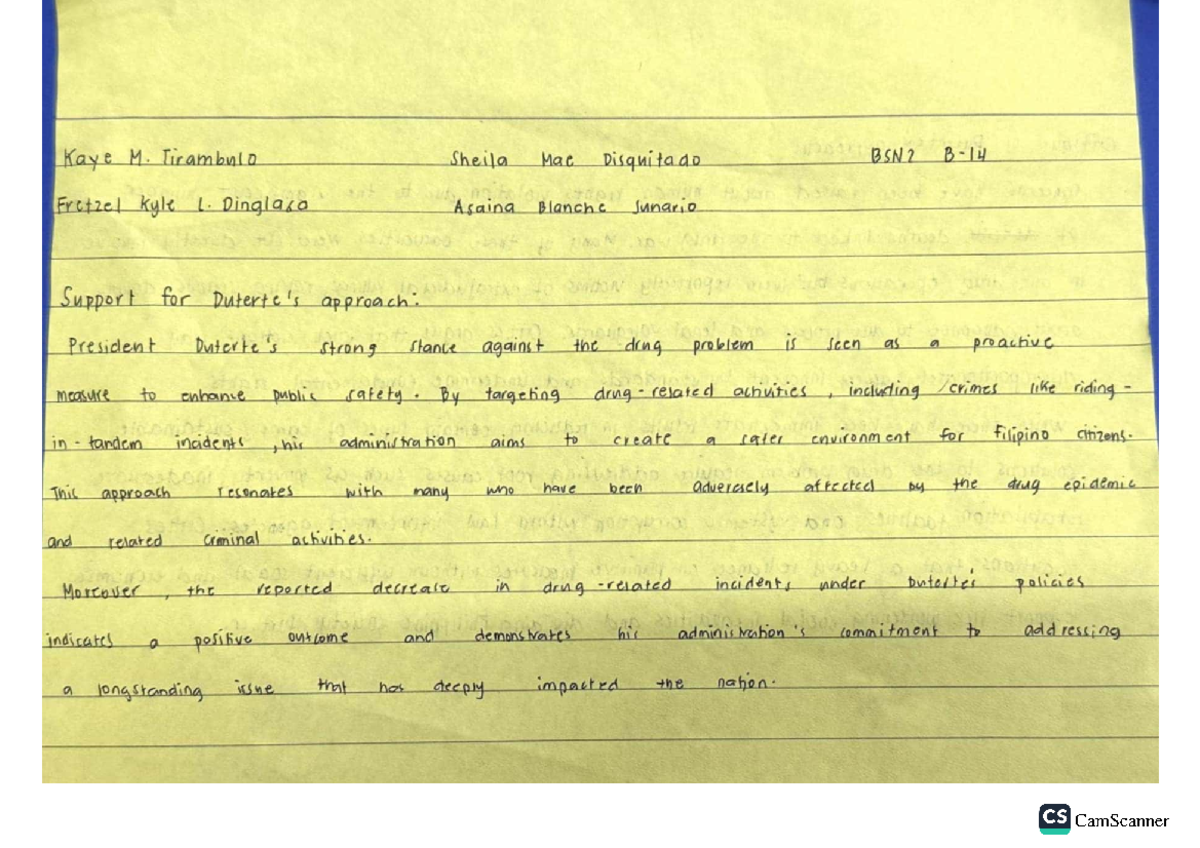 Kaye M. Tirambulo Sheila Mae Disquitado BSN2 B-14
Fretzel Kyle L. Dinglasa Asaina Blanche Junario
Support for Duterte's approach:
President Duterte's strong stance against the drug problem is seen as a proactive
measure to enhance public safety. By targeting drug-related activities, including crimes like riding-
in-tandem incidents, his administration aims to create a safer environment for Filipino citizens.
This approach resonates with many who have been adversely affected by the drug epidemic
and related criminal activities.
Moreover, the reported decrease in drug-related incidents under Duterte's policies
indicates a positive outcome and demonstrates his administration's commitment to addressing
a longstanding issue that has deeply impacted the nation.
CS CamScanner